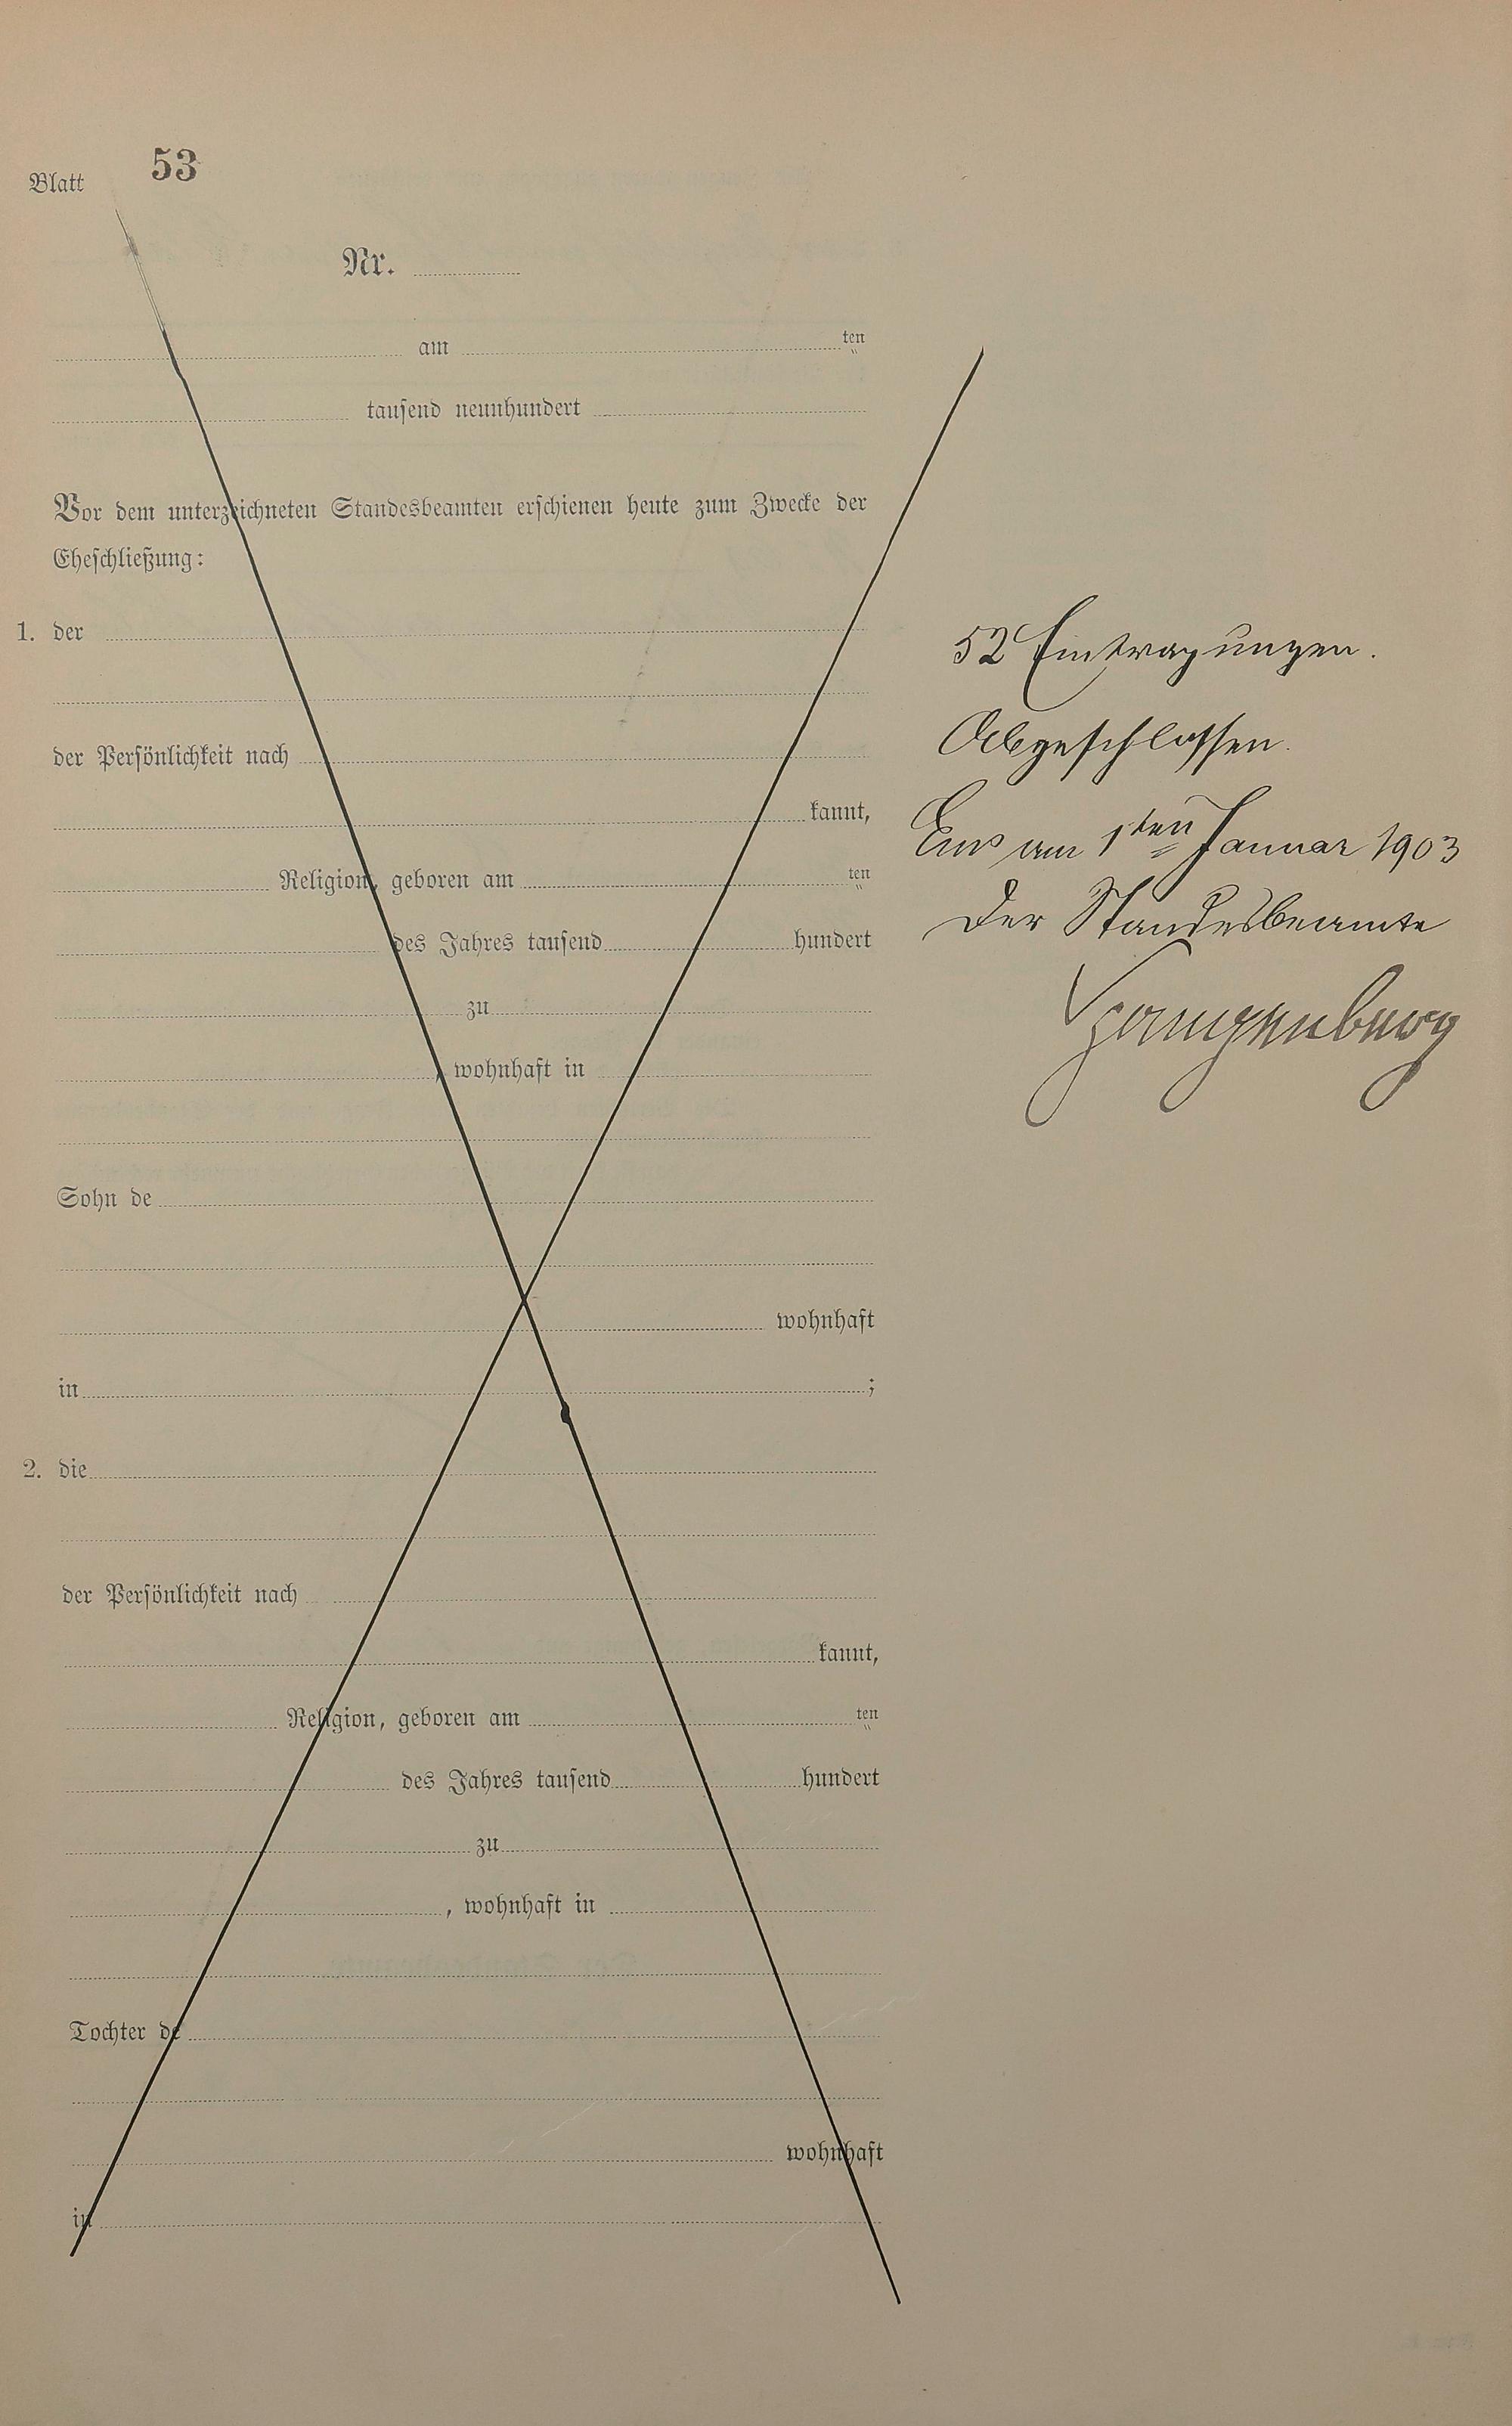 Blatt 53
Nr.
am ten
tausend neunhundert
Vor dem unterzeichneten Standesbeamten erschienen heute zum Zwecke der
Eheschließung:
1. der
der Persönlichkeit nach
kannt,
Religion, geboren am ten
des Jahres tausend hundert
zu
, wohnhaft in
Sohn de
wohnhaft
in ;
2. die
der Persönlichkeit nach
kannt,
Religion, geboren am ten
des Jahres tausend hundert
zu
, wohnhaft in
Tochter de
wohnhaft
in
52 Eintragungen.
Abgeschlossen.
Ems am 1ten Januar 1903
Der Standesbeamte